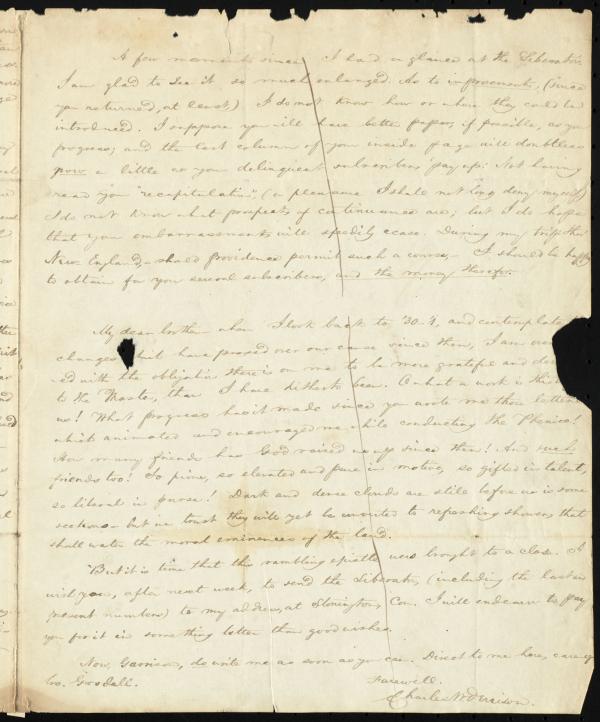 A few moments since I had a glance at the Liberator.
I am glad to see it so much enlarged. As to improvements, (since
you returned, at least,) I do not know how or where they could be
introduced. I suppose you will have better paper, if possible, as you
progress; and the last column of your inside page will doubtless
grow a little as your delinquent subscribers pay up. Not having
read your "recapitulation", (a pleasure I shall not long deny myself)
I do not know what prospects of continuance are; but I do hope
that your embarrassments will speedily cease. During my trip thro'
New England, should providence permit such a course, I should be happy
to obtain for you several subscribers, and the money therefor.
My dear brother when I look back to '30-1, and contemplate
changes that have passed over our cause since then, I am over
ed with the obligation there is on me to be more grateful and de
to the Master, than I have hitherto been. O what a work is th
us! What progress has it made since you wrote me those letters
which animated and encouraged me while conducting the Phenix!
How many friends has God raised us up since then! And such
friends too! So pious, so elevated and pure in motive, so gifted in talent,
so liberal in purse! Dark and dense clouds are still before us in some
sections— but we trust they will yet be converted to refreshing showers, that
shall water the moral eminences of the land.
But it is time that this rambling epistle were brought to a close. I
wish you, after next week, to send the Liberator, (including the last and
present numbers) to my address, at Stonington, Con. I will endeavor to pay
you for it in something better than good wishes.
Now, Garrison, do write me as soon as you can. Direct to me here, care of
bro. Goodell.
Farewell.
Charles W. Denison.